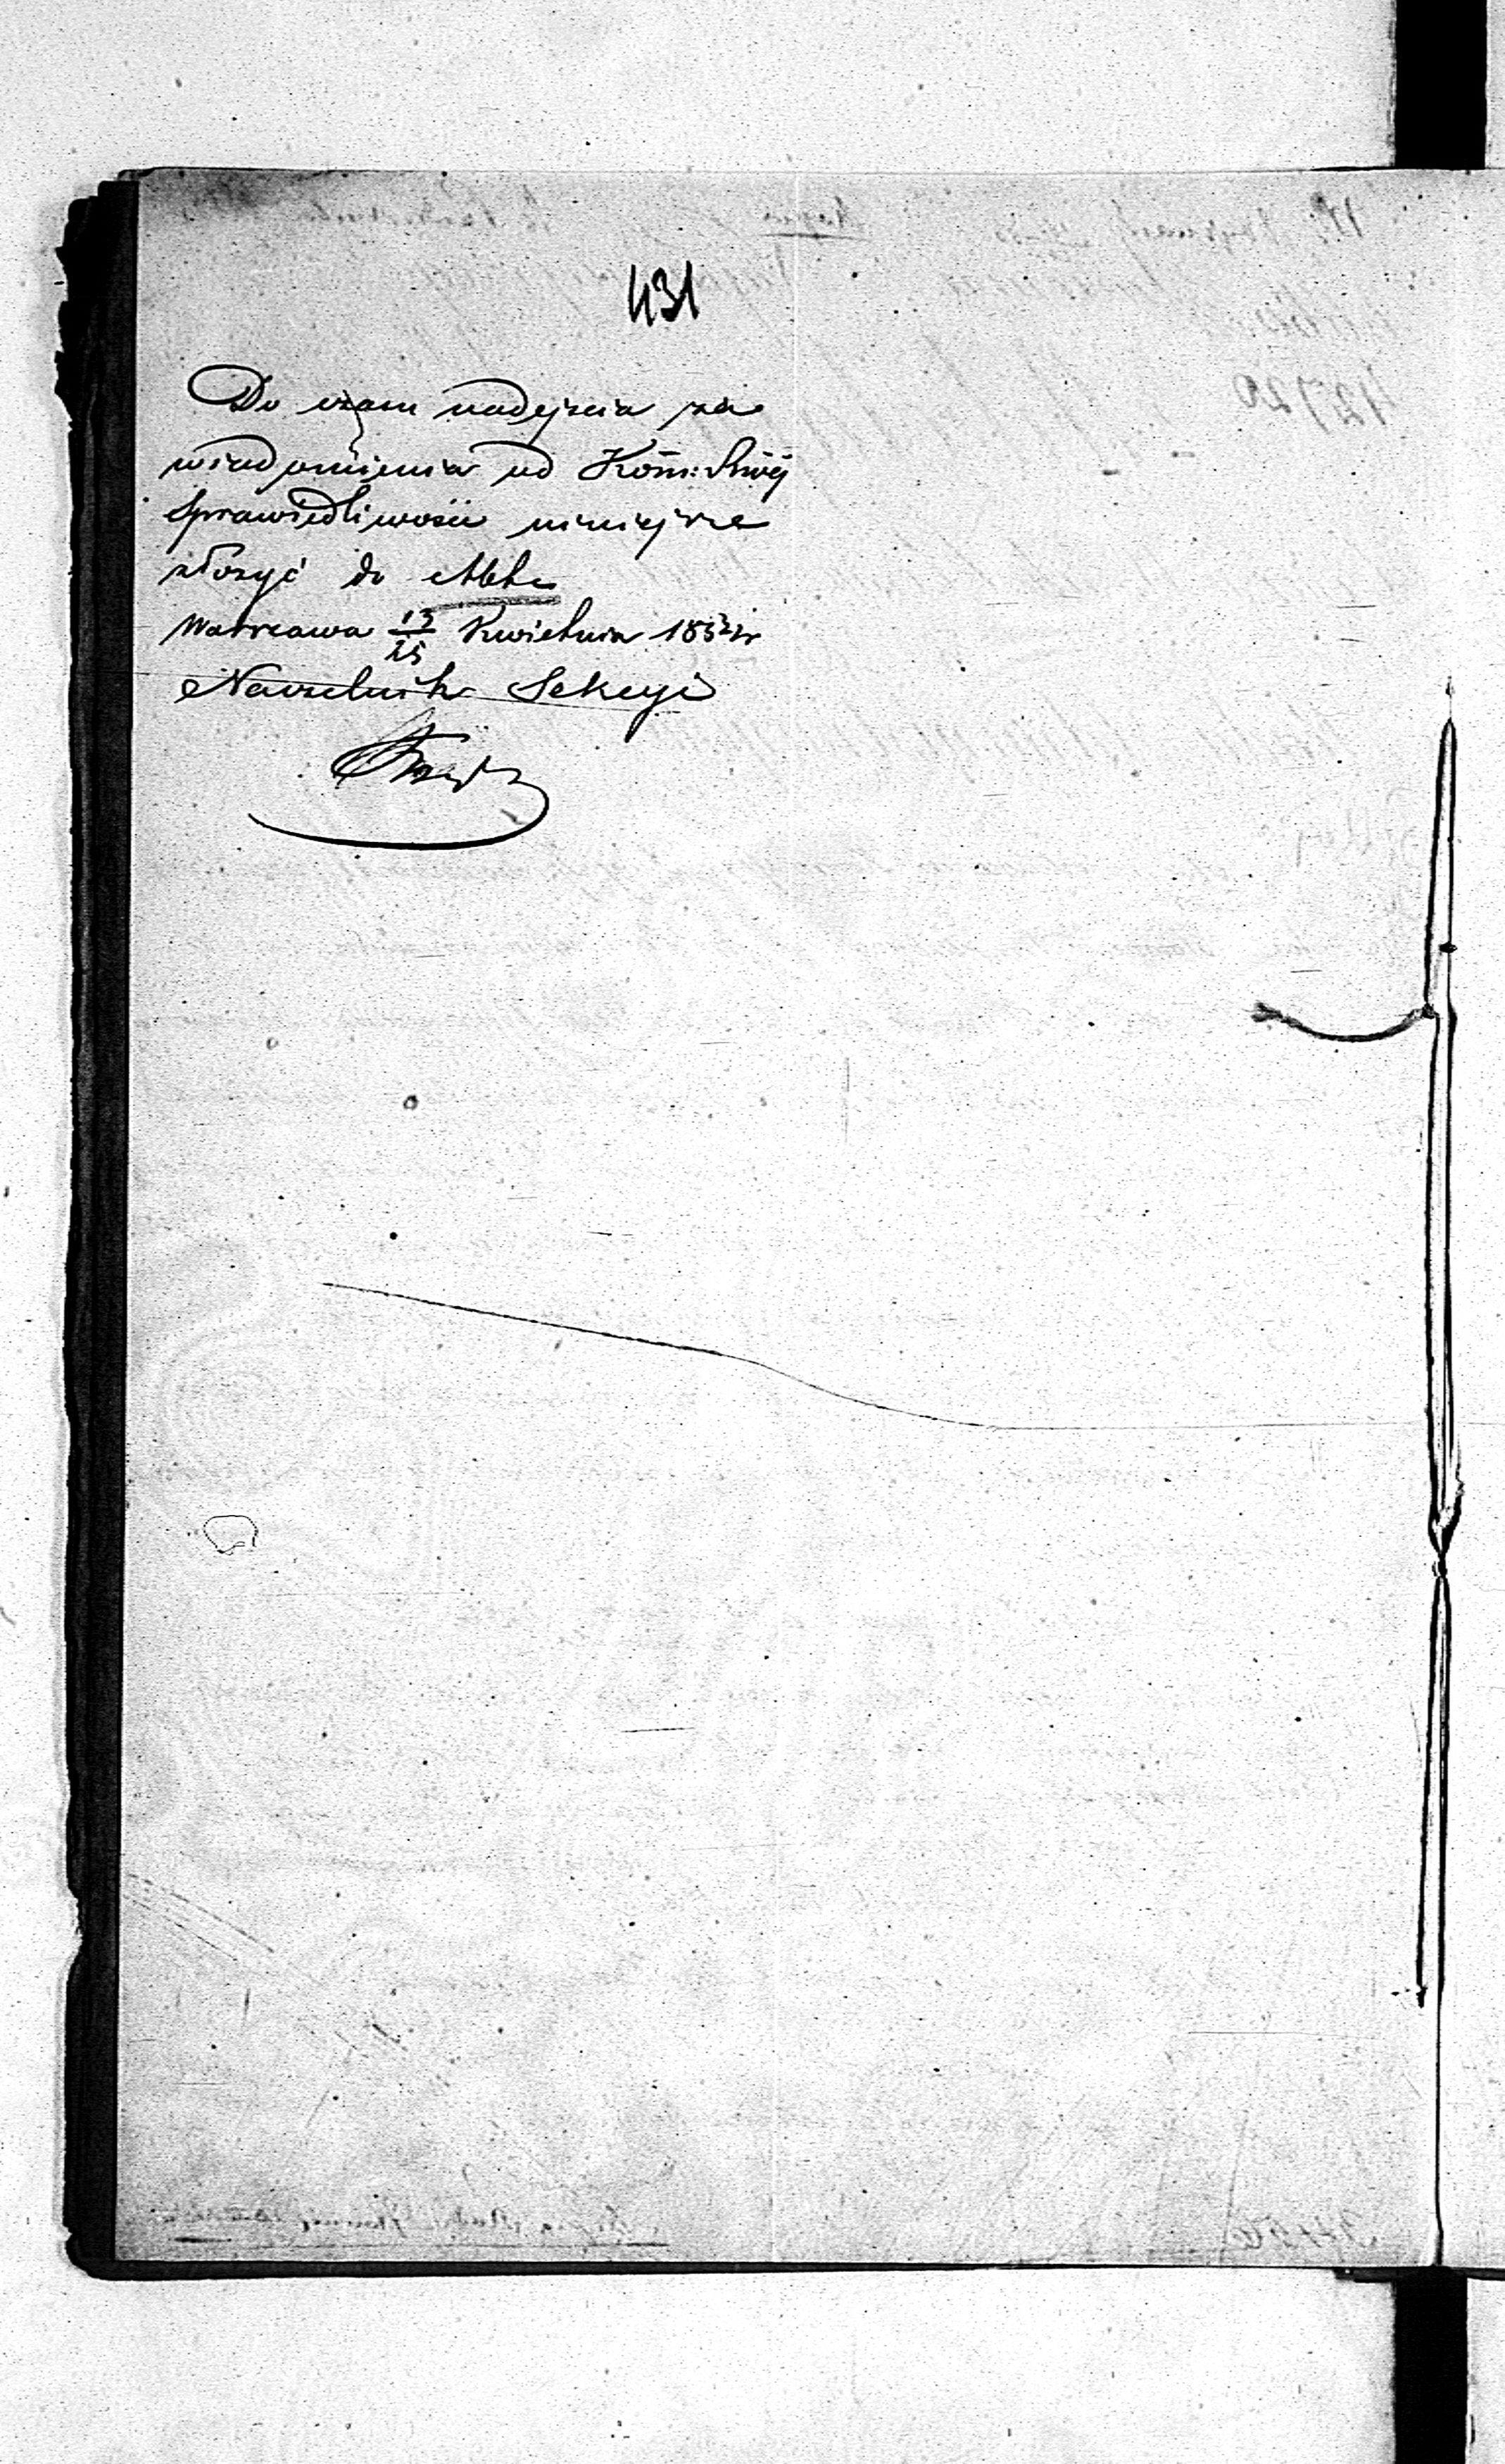 431
Do czasu nadejścia za
wiadomienia od Kom: Rząj
Sprawiedliwości niniejsze
złożyć do Akt
Warszawa 13/25 Kwietnia 185
Naczelnik Sekcyi